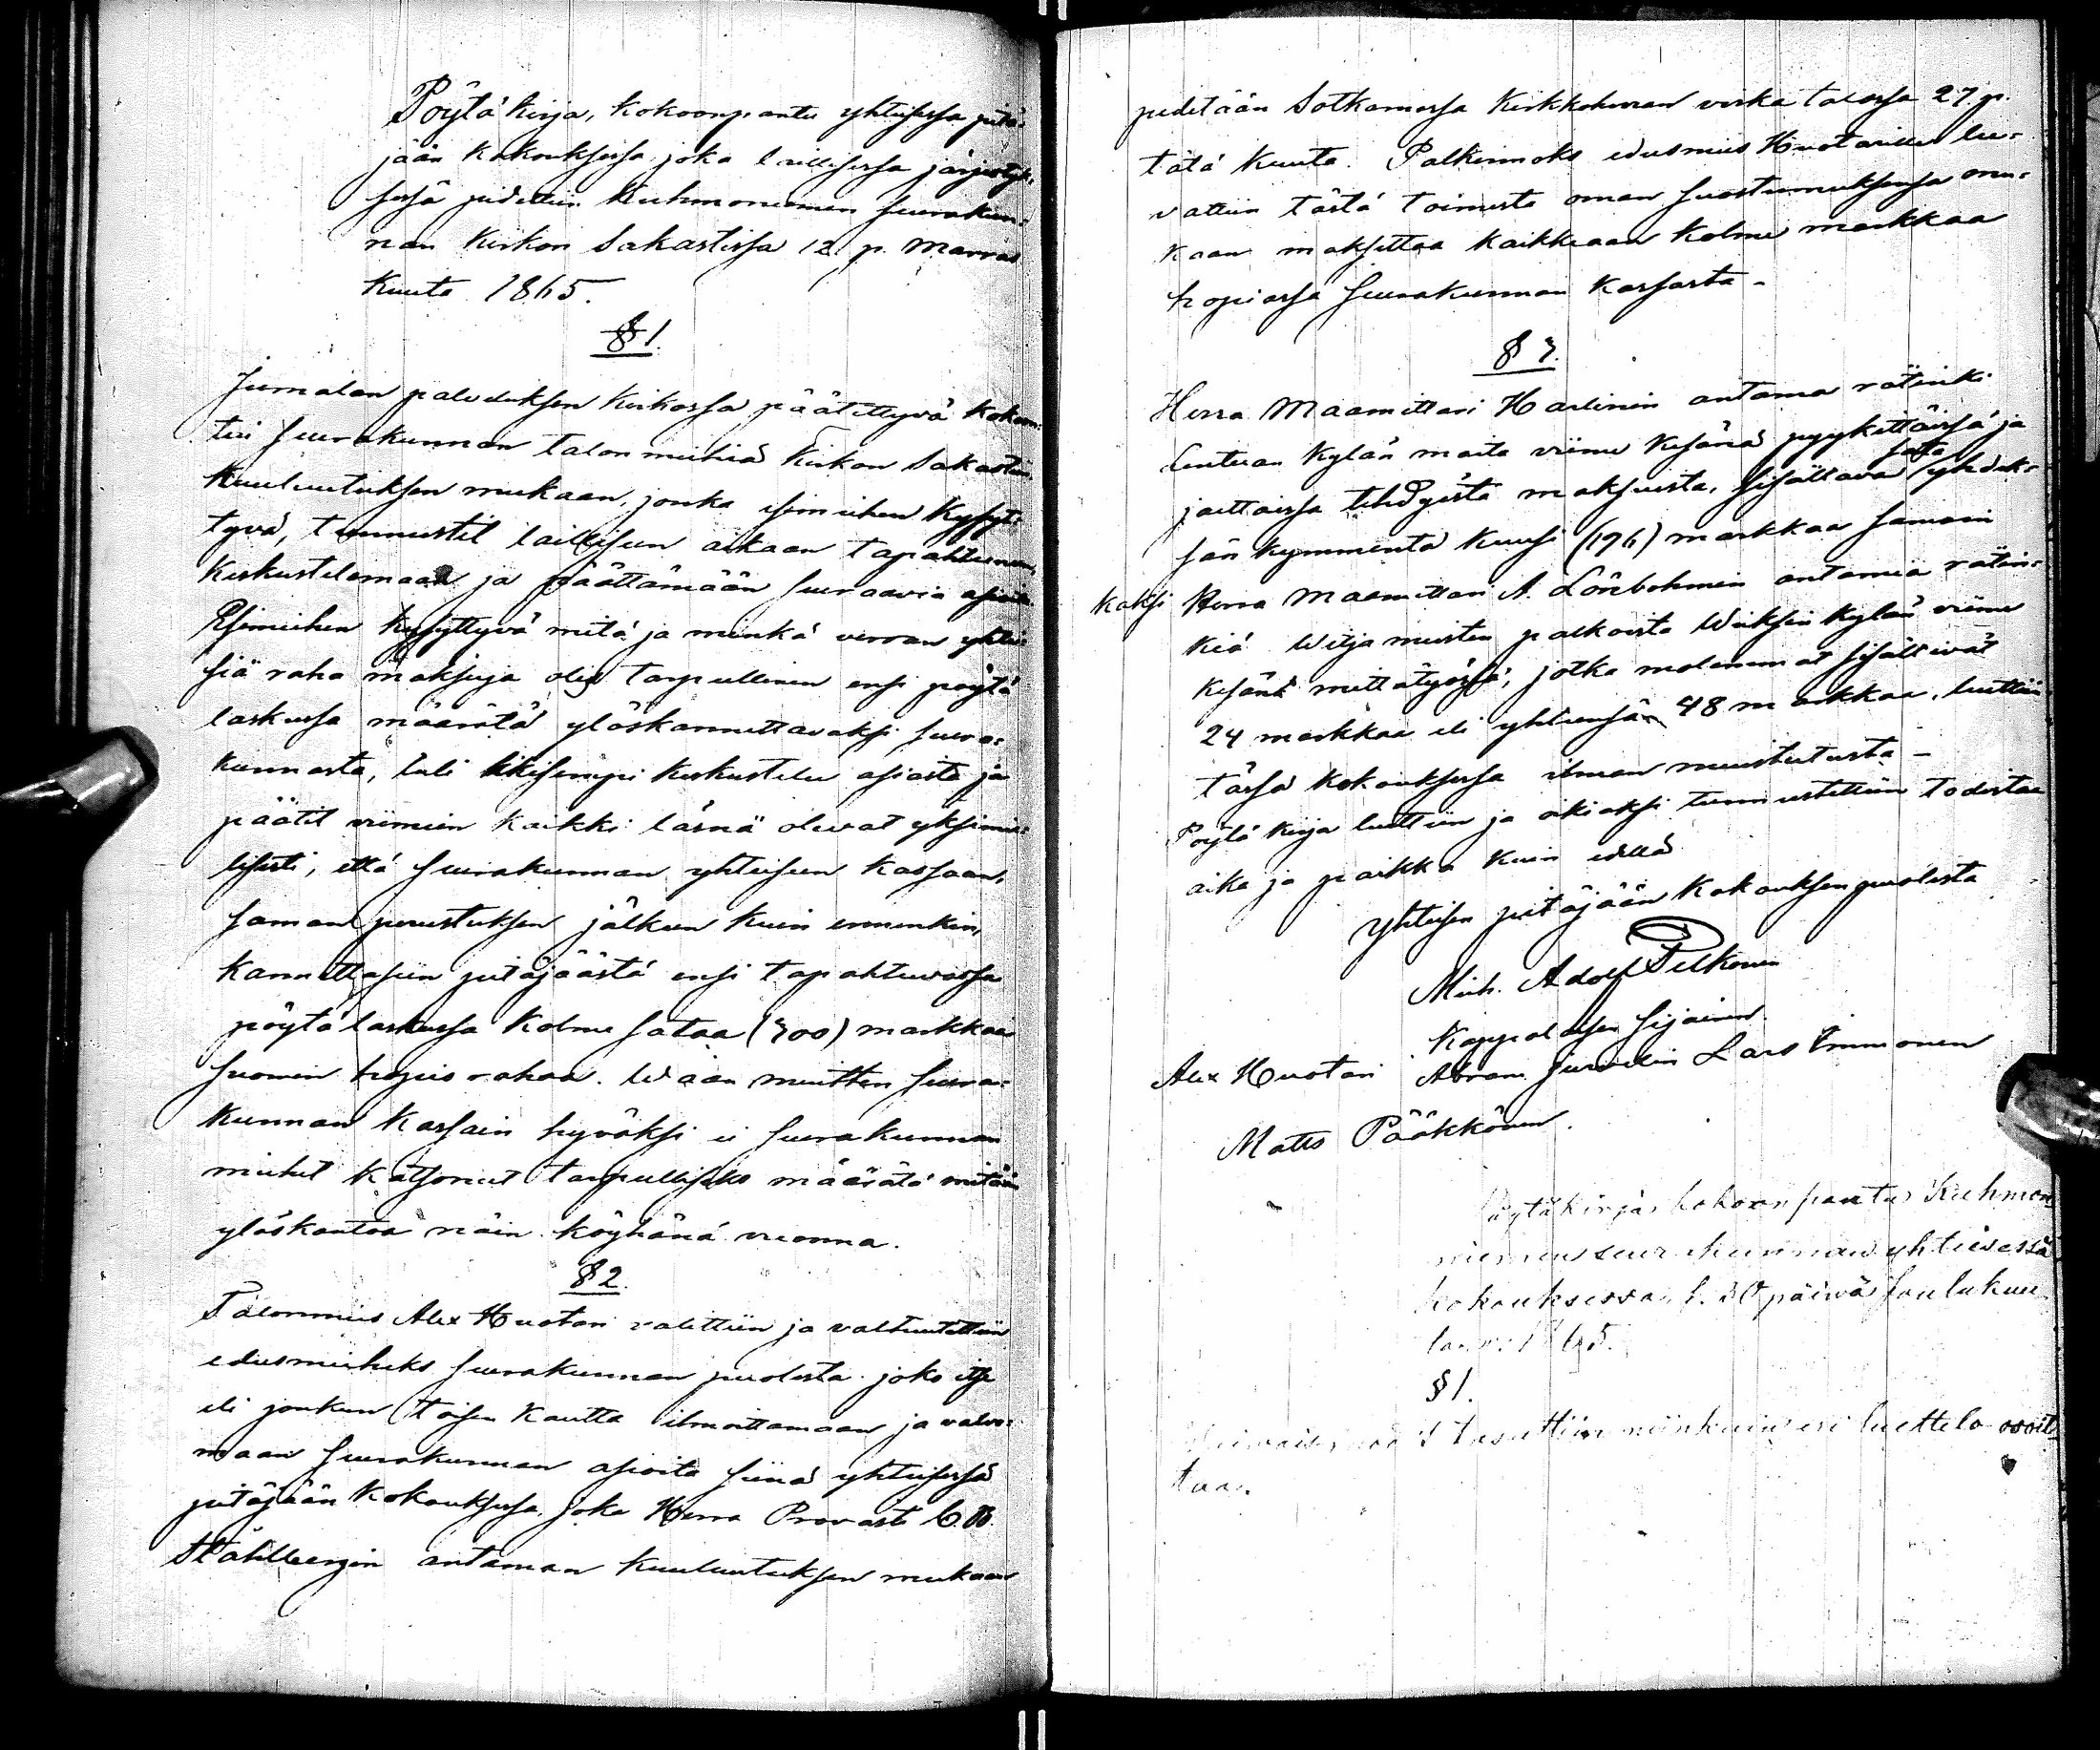 Pöytä kirja, kokoonpantu yhteisessä pitä-
jään kokouksessa, joka laillisessa järjestyk-
sessä pidettiin Kuhmoniemen seurakun-
nan kirkon Sakastissa 12. p. Marras
kuuta 1865.
§ 1.
Jumalan paluveluksen kirkossa päätettyvä kokoon-
tui seurakunnan talon miehiä kirkon Sakastiin,
kuuluutuksen mukaan, jonka esimiehen kysyt-
tyvä, tunnustit lailliseen aikaan tapahtuneen,
keskustelemaan ja päättämään seuraavia asioita.
Esimiehen kysyttyvä mitä ja minkä verran yhtei-
siä raha maksuja olisi tarpeellinen ensi pöytä
laskussa määrätä ylöskannettavaksi seura-
kunnasta, tuli likisempi keskustelu asiasta ja
päätit viimein kaikki läsnä olevat yksimie-
lisesti, että seurakunnan yhteiseen kassaan,
saman perustuksen jälkeen kuin ennenkin,
kannettasiin pitäjäästä ensi tapahtuvassa
pöytä laskussa kolme sataa (300) markkaa
Suomen hopia rahaa. Waan muitten seura-
kunnan kassain hyväksi ei seurakunnan
miehet katsoneet tarpeelliseks määrätä mitään
ylöskantoa näin köyhänä vuonna.
§ 2.
Talonmies Alex Huotari valittiin ja valtuutettiin
edusmieheks seurakunnan puolesta joko itse
eli jonkun toisen kautta ilmoittamaan ja valvo-
maan seurakunnan asioita siinä yhteisessä
pitäjään kokouksessa, joka Herra Provasti C. B.
Ståhlbergin antaman kuuluutuksen mukaan
pidetään Sotkamossa Kirkkoherran virka talossa 27. p.
tätä kuuta. Palkinnoks edusmies Huotarille lu-
vattiin tästä toimesta oman suostumuksensa mu-
kaan maksettaa kaikkiaan kolme markkaa
hopiassa seurakunnan kassasta –
§ 3.
Herra Maamittari Harlinin antama rätinki
Lentiiran kylän maita viime kesänä pyykettäissä ja
jaettaissa tehdyistä maksuista, sisältävä sata yhdek-
sän kymmentä kuusi (196) markkaa samoin
kaksi Herra Maamittari A. Lönbohmin antamia rätin-
kiä Wilja miesten palkoista Wieksin kylän viime
kesänä mittätyössä, jotka molemmat sisältivät
24 markkaa eli yhteensä 48 markkaa, luettiin
tässä kokouksessa ilman muistutusta –
Pöytä kirja luettiin ja oikiaksi tunnustettiin todistaa
aika ja paikka kuin edellä
Yhteisen pitäjään kokouksen puolesta
Mich. Adolf Pelkonen
Kappalaisen sijainen.
Alex Huotari Abram Juntulin Lars Timmonen
Matts Pääkkönen.
Pöytäkirja, kokoonpantu Kuhmon-
niemen seurakunnan yhteisessä
kokouksessa, 30 päivä Joulukuu
1865.
§ 1.
tasattiin niinkuin eri luettelo osoit-
taa.